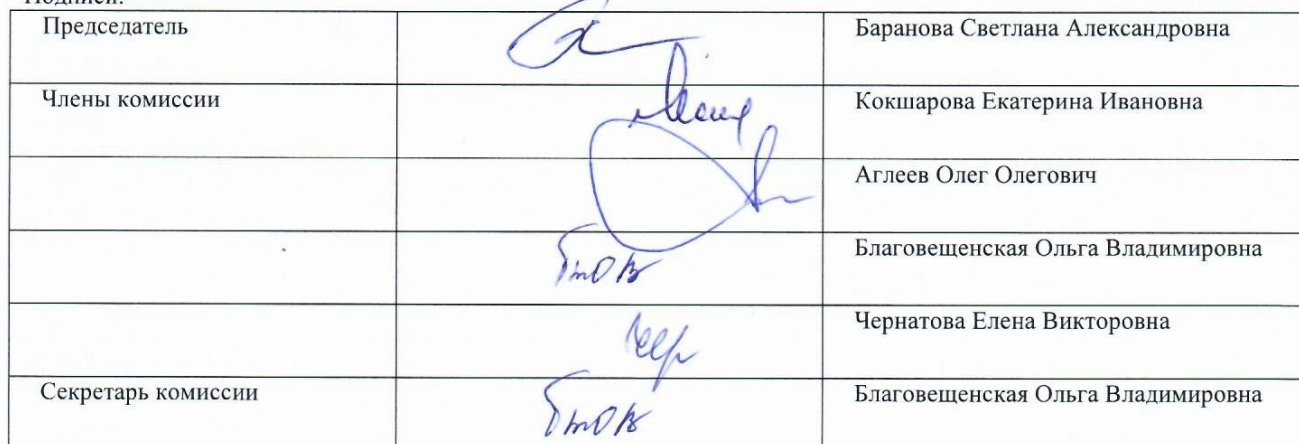 Подписи:
Председатель Баранова Светлана Александровна
Члены комиссии Кокшарова Екатерина Ивановна
Аглеев Олег Олегович
Благовещенская Ольга Владимировна
Чернатова Елена Викторовна
Секретарь комиссии Благовещенская Ольга Владимировна